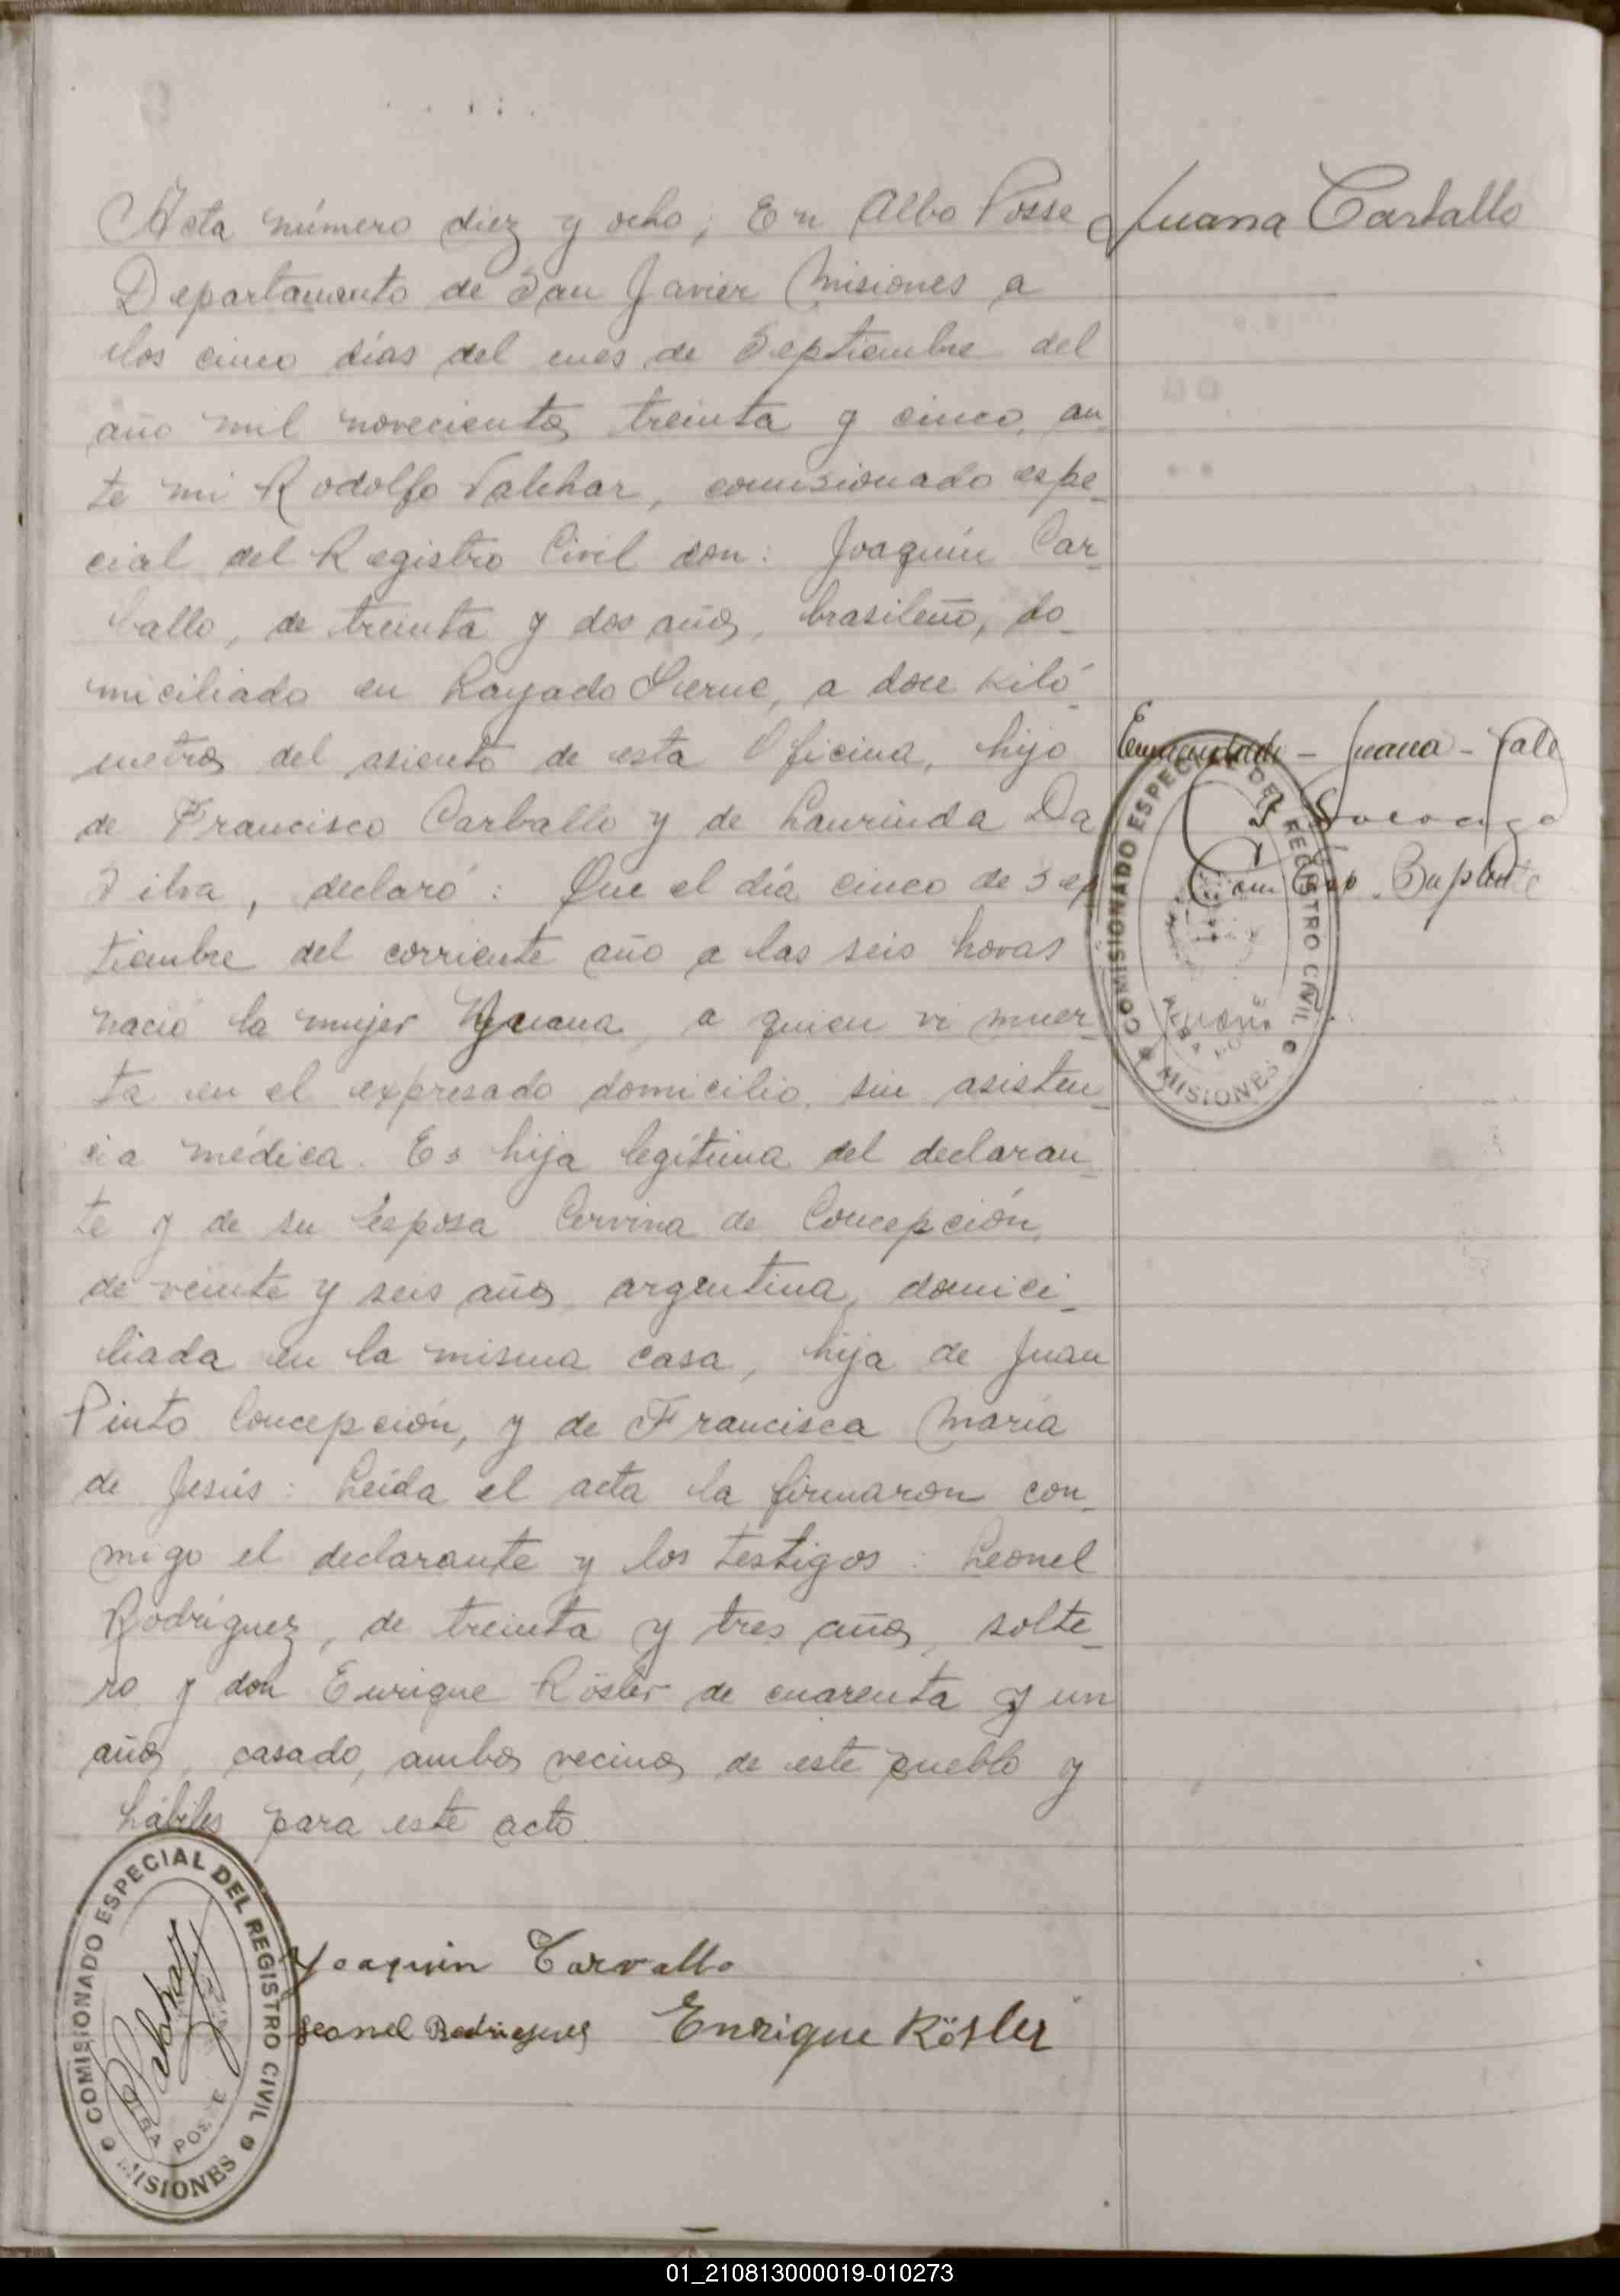 Acta número diez y ocho; En Alba Posse
Juana Carballo
Departamento de San Javier Misiones a
los cinco días del mes de Septiembre del
año mil novecientos treinta y cinco, an_
te mi Rodolfo, comisionado espe_
cial del Registro Civil don: Joaquín Car_
ballo, de treinta y dos años, brasileño, do_
miciliado en, a doce kiló_
metros del asiento de esta Oficina, hijo
de Francisco Carballo y de Laurinda Da
Silva, declaró: Que el día cinco de Sep
tiembre del corriente año a las seis horas
nació la mujer Juana, a quien vi muer_
ta en el expresado domicilio, sin asisten_
cia médica. Es hija legítima del declaran_
te y de su esposa Corvina de Concepción,
de veinte y seis años, argentina, domici_
liada en la misma casa, hija de Juan
Pinto Concepción, y de Francisca María
de Jesús: Leída el acta la firmaron con_
migo el declarante y los testigos: Leonel
Rodríguez, de treinta y tres años, solte_
ro y don Enrique Rösler de cuarenta y un
años, casado, ambos vecinos de este pueblo y
hábiles para este acto.
Enmendado - Juana - Vale
Com Esp. Suplente
COMISIONADO ESPECIAL DEL REGISTRO CIVIL
ALBA POSSE
MISIONES
Joaquin Carvallo
Leonel Rodriguez Enrique Rösler
COMISIONADO ESPECIAL DEL REGISTRO CIVIL
ALBA POSSE
MISIONES
01_210813000019-010273